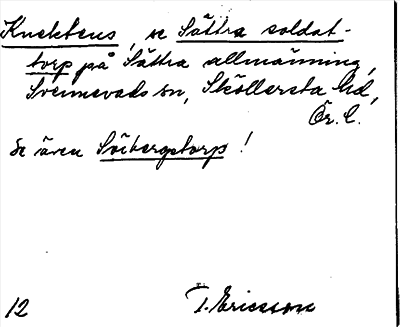 Knektens, se Sättra soldat-
torp på Sättra allmänning,
Svennevads sn, Sköllersta hd,
Ör. l.
Se även Sörbergstorp!
12 T. Ericsson